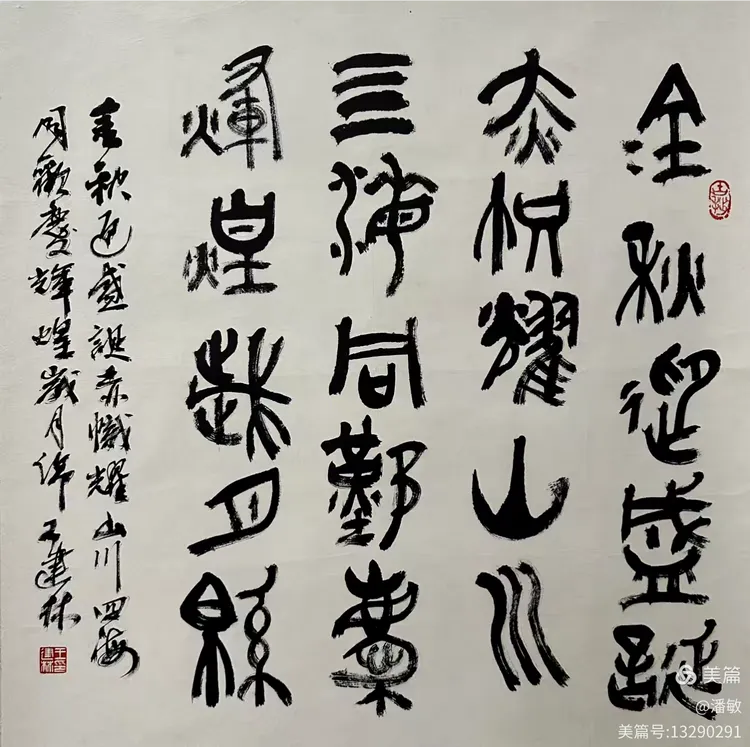 金秋迎盛誕
赤帜耀山川
亖海同歡慶
煇煌歲月綿
金秋迎盛誕赤幟耀山川四海
同歡慶輝煌歲月綿 王建林
美篇
@潘敏
美篇号:13290291